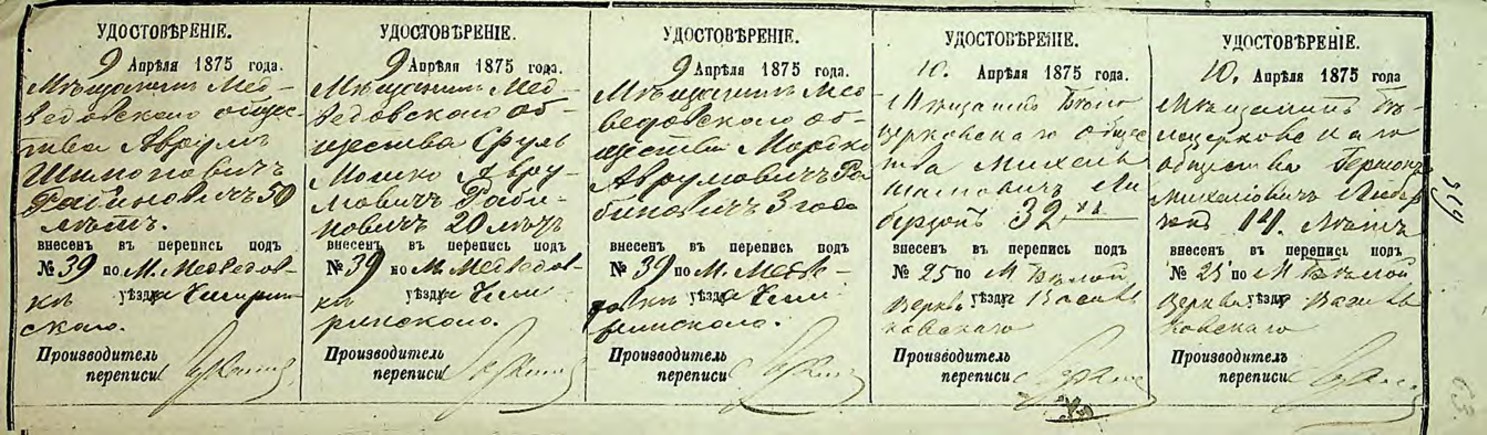 УДОСТОВѢРЕНІЕ.
9 Апрѣля 1875 года.
Мѣщанинъ Мед-
ведовскаго общес-
тва Аврумъ
Шимоновичъ
Рабиновичъ 50
лѣтъ.
внесенъ въ перепись подъ
№ 39 по М. Медведов-
ки уѣзда Чигирин
скаго.
Производитель
переписи
УДОСТОВѢРЕНІЕ.
9 Апрѣля 1875 года.
Мѣщанинъ Мед-
ведовскаго об-
щества Сруль
Мошко Авру-
мовичъ Раби-
новичъ 20 лѣтъ
внесенъ въ перепись подъ
№ 39 по М. Медведов-
ки уѣзда Чиги-
ринскаго.
Производитель
переписи
УДОСТОВѢРЕНІЕ.
9 Апрѣля 1875 года.
Мѣщанинъ Мед
ведовскаго об-
щества Мордко
Аврумовичъ Ра
биновичъ 3 года
внесенъ въ перепись подъ
№ 39 по М. Медве-
довки уѣзда Чиги
ринскаго.
Производитель
переписи
УДОСТОВѢРЕНІЕ.
10. Апрѣля 1875 года.
Мѣщанинъ Бѣло
церковскаго общес
тва Михель
32
внесенъ въ перепись подъ
№ 25 по М Бѣлой
Церкви уѣзда Василь
ковскаго
Производитель
переписи
УДОСТОВѢРЕНІЕ.
10. Апрѣля 1875 года
Мѣщанинъ Бѣ-
лоцерковскаго
общества Гершонъ
Михелевичъ
14. лѣтъ
внесенъ въ перепись подъ
№ 25 по М Бѣлой
Церкви уѣзда Василь
ковскаго
Производитель
переписи